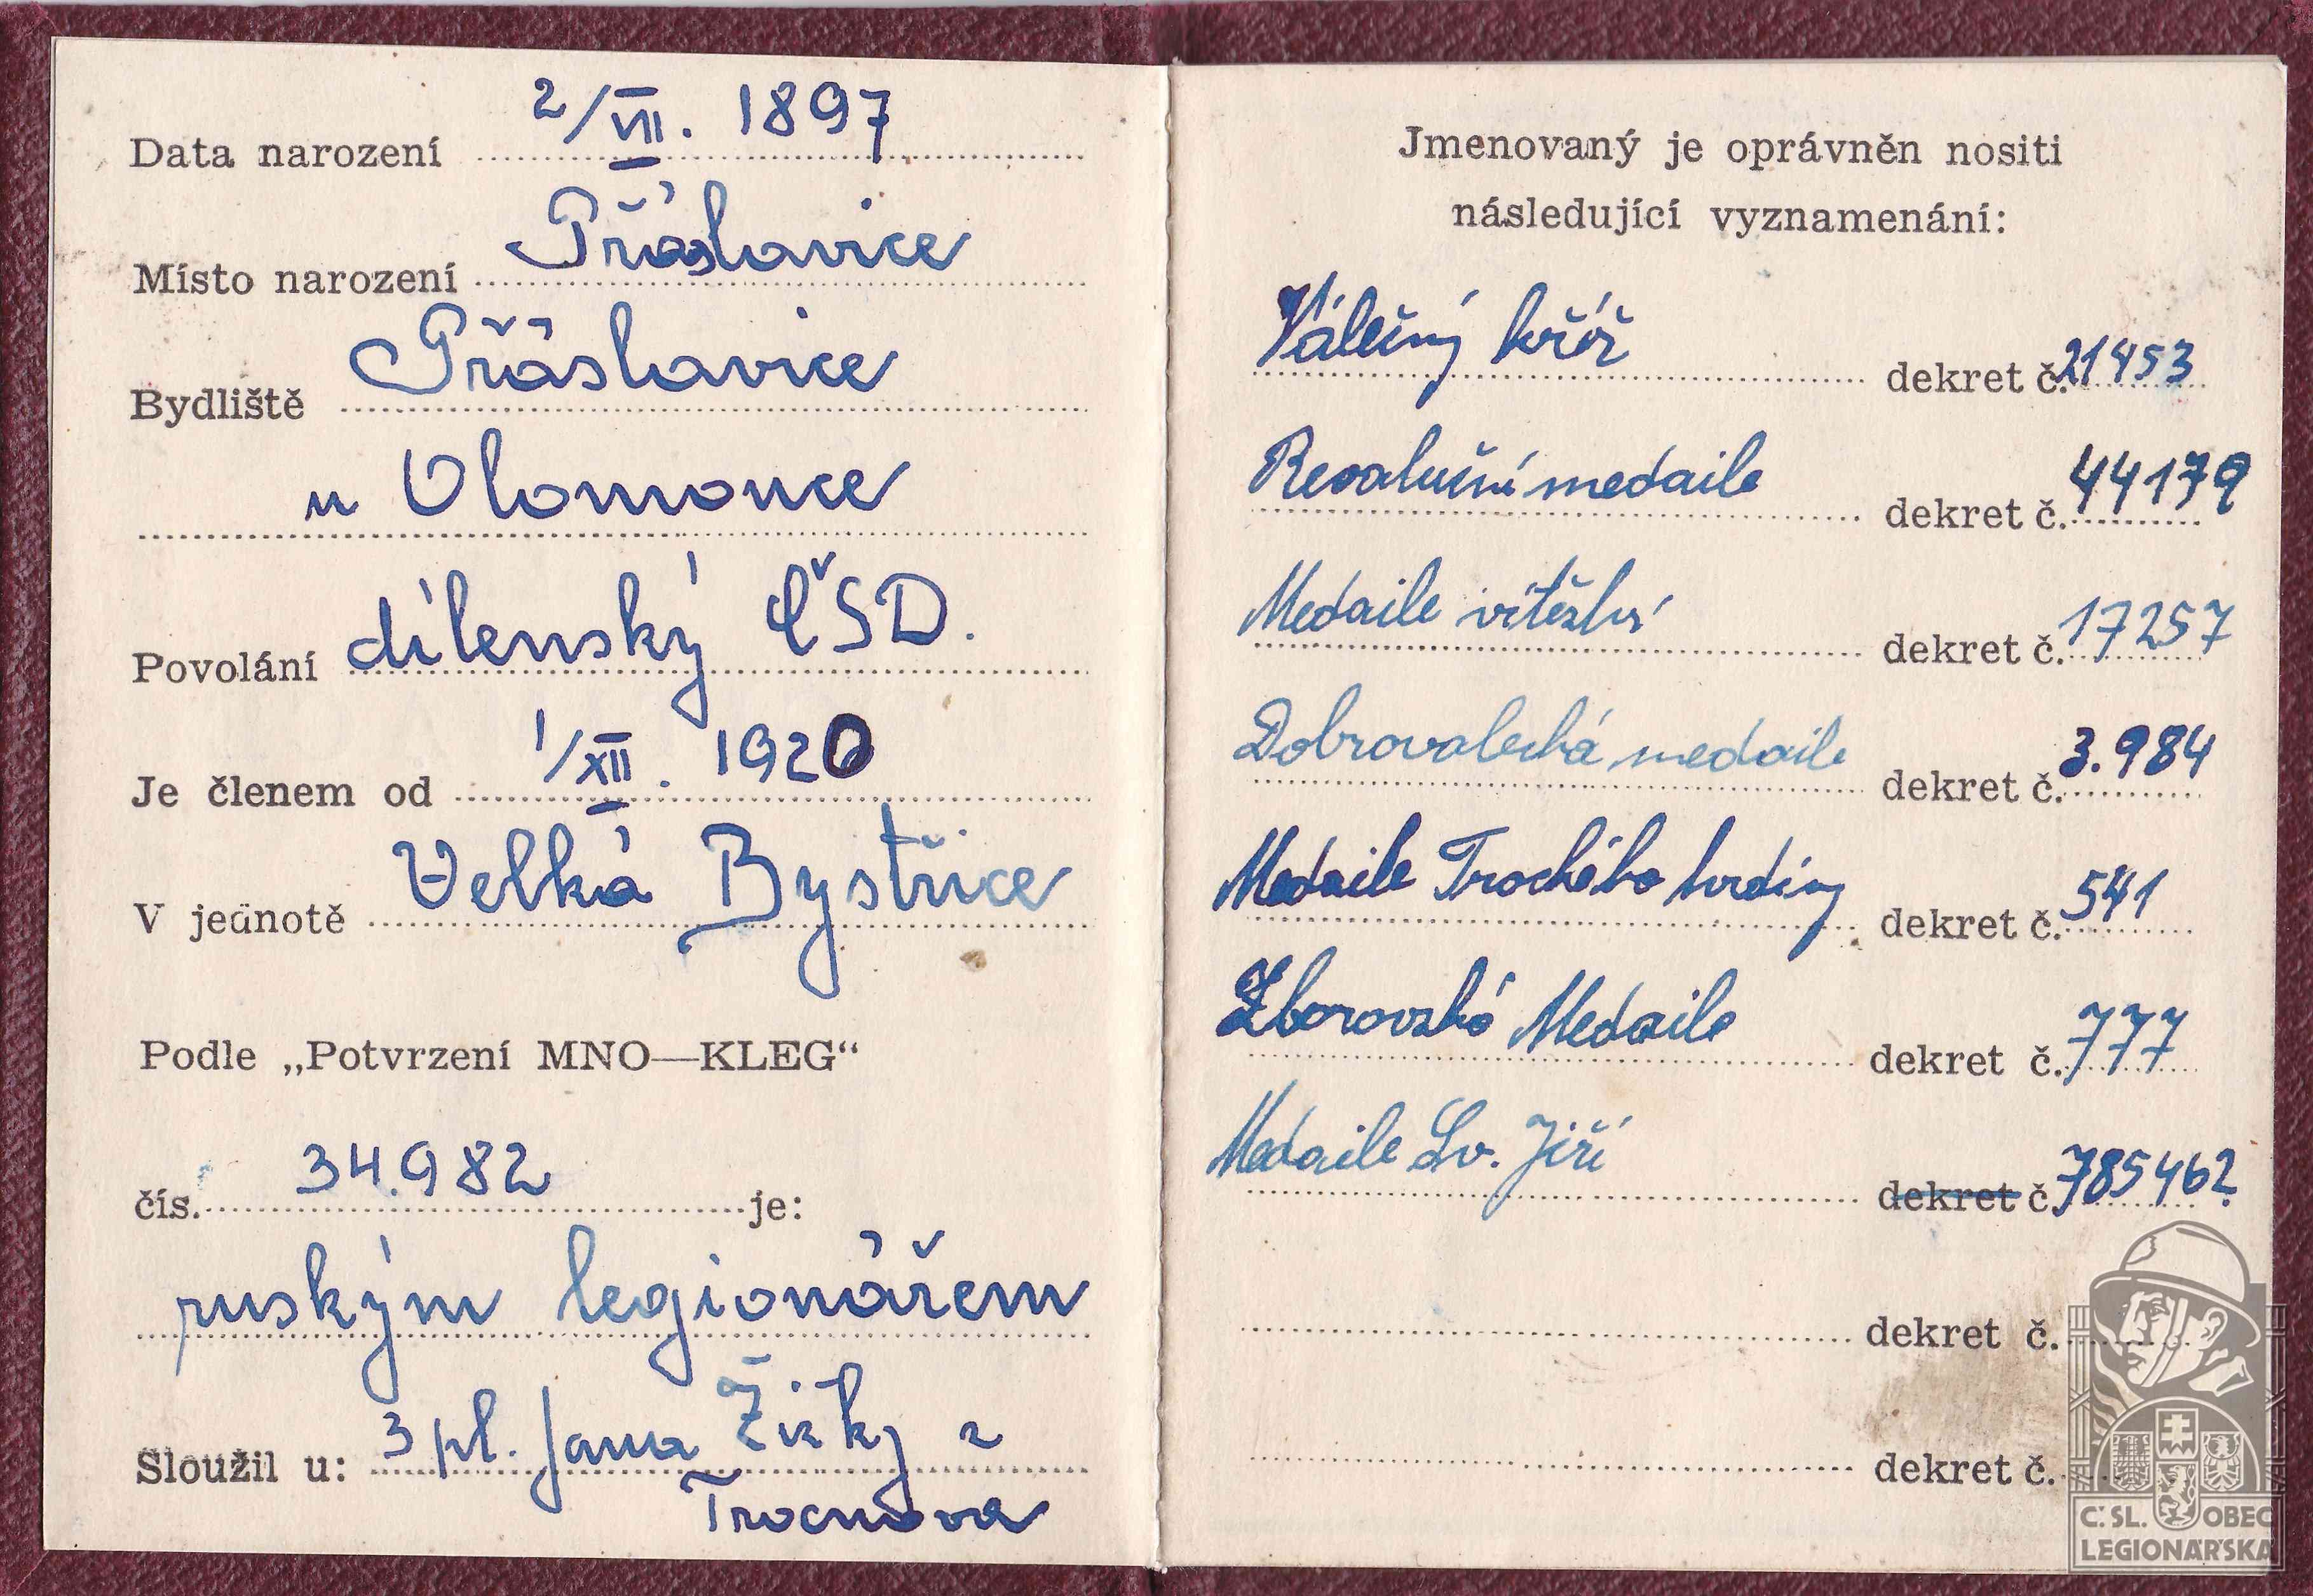 2/VII. 1897
Data narození
Přáslavice
Místo narození
Přáslavice
Bydliště
u Olomouce
dílenský ČSD.
Povolání
1/XII. 1920
Je členem od
Velká Bystřice
V jednotě
Podle „Potvrzení MNO—KLEG“
34.982
čís. je:
ruským legionářem
Sloužil u: 3 pl. Jana Žižky z
Trocnova
Jmenovaný je oprávněn nositi
následující vyznamenání:
Válečný kříž dekret č. 21453
Revoluční medaile dekret č. 44179
Medaile vítězství dekret č. 17257
Dobrovolecká medaile dekret č. 3.984
Medaile Trockého hrdiny dekret č. 541
Zborovská Medaile dekret č. 777
Medaile Sv. Jiří dekret č. 785462
dekret č.
dekret č.
Č.SL. OBEC
LEGIONÁŘSKÁ